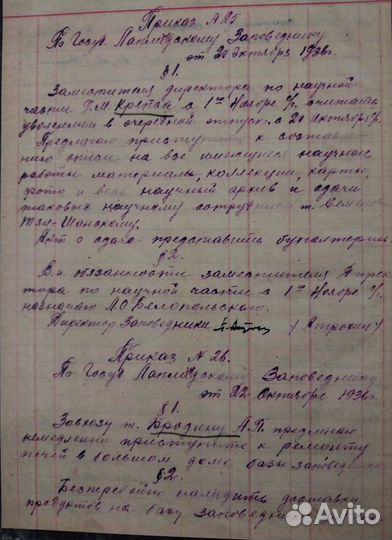 Приказ №25
По Госуд. Лапландскому Заповеднику
от 20 октября 1936г.
§1.
Заместителя директора по научной
части Г.М. Крепса с 1го Ноября с/г. считать
уволенным в очередной отпуск с 20 октября с/г.
Предлагаю приступить к составле-
нию описи на все имеющиеся научные
работы материалы, коллекции, карты,
фото и весь научный архив и сдачи
таковых научному сотруднику т. Семенов
Тян-Шанскому.
Акт о сдаче представить бухгалтерии.
§2.
В.и. обязанности заместителя Дирек-
тора по научной части с 1го Ноября с/г.
назначаю Л.О. Белопольского.
Директор Заповедника
Приказ №26.
По Госуд Лапландскому Заповеднику
от 22 Октября 1936г.
§1.
Завхозу т. Бродину А.Я. предлагаю
немедленно приступить к ремонту
печей в большом доме базы заповедника
§2.
Бесперебойно наладить доставку
продуктов на базу заповедника
Avito